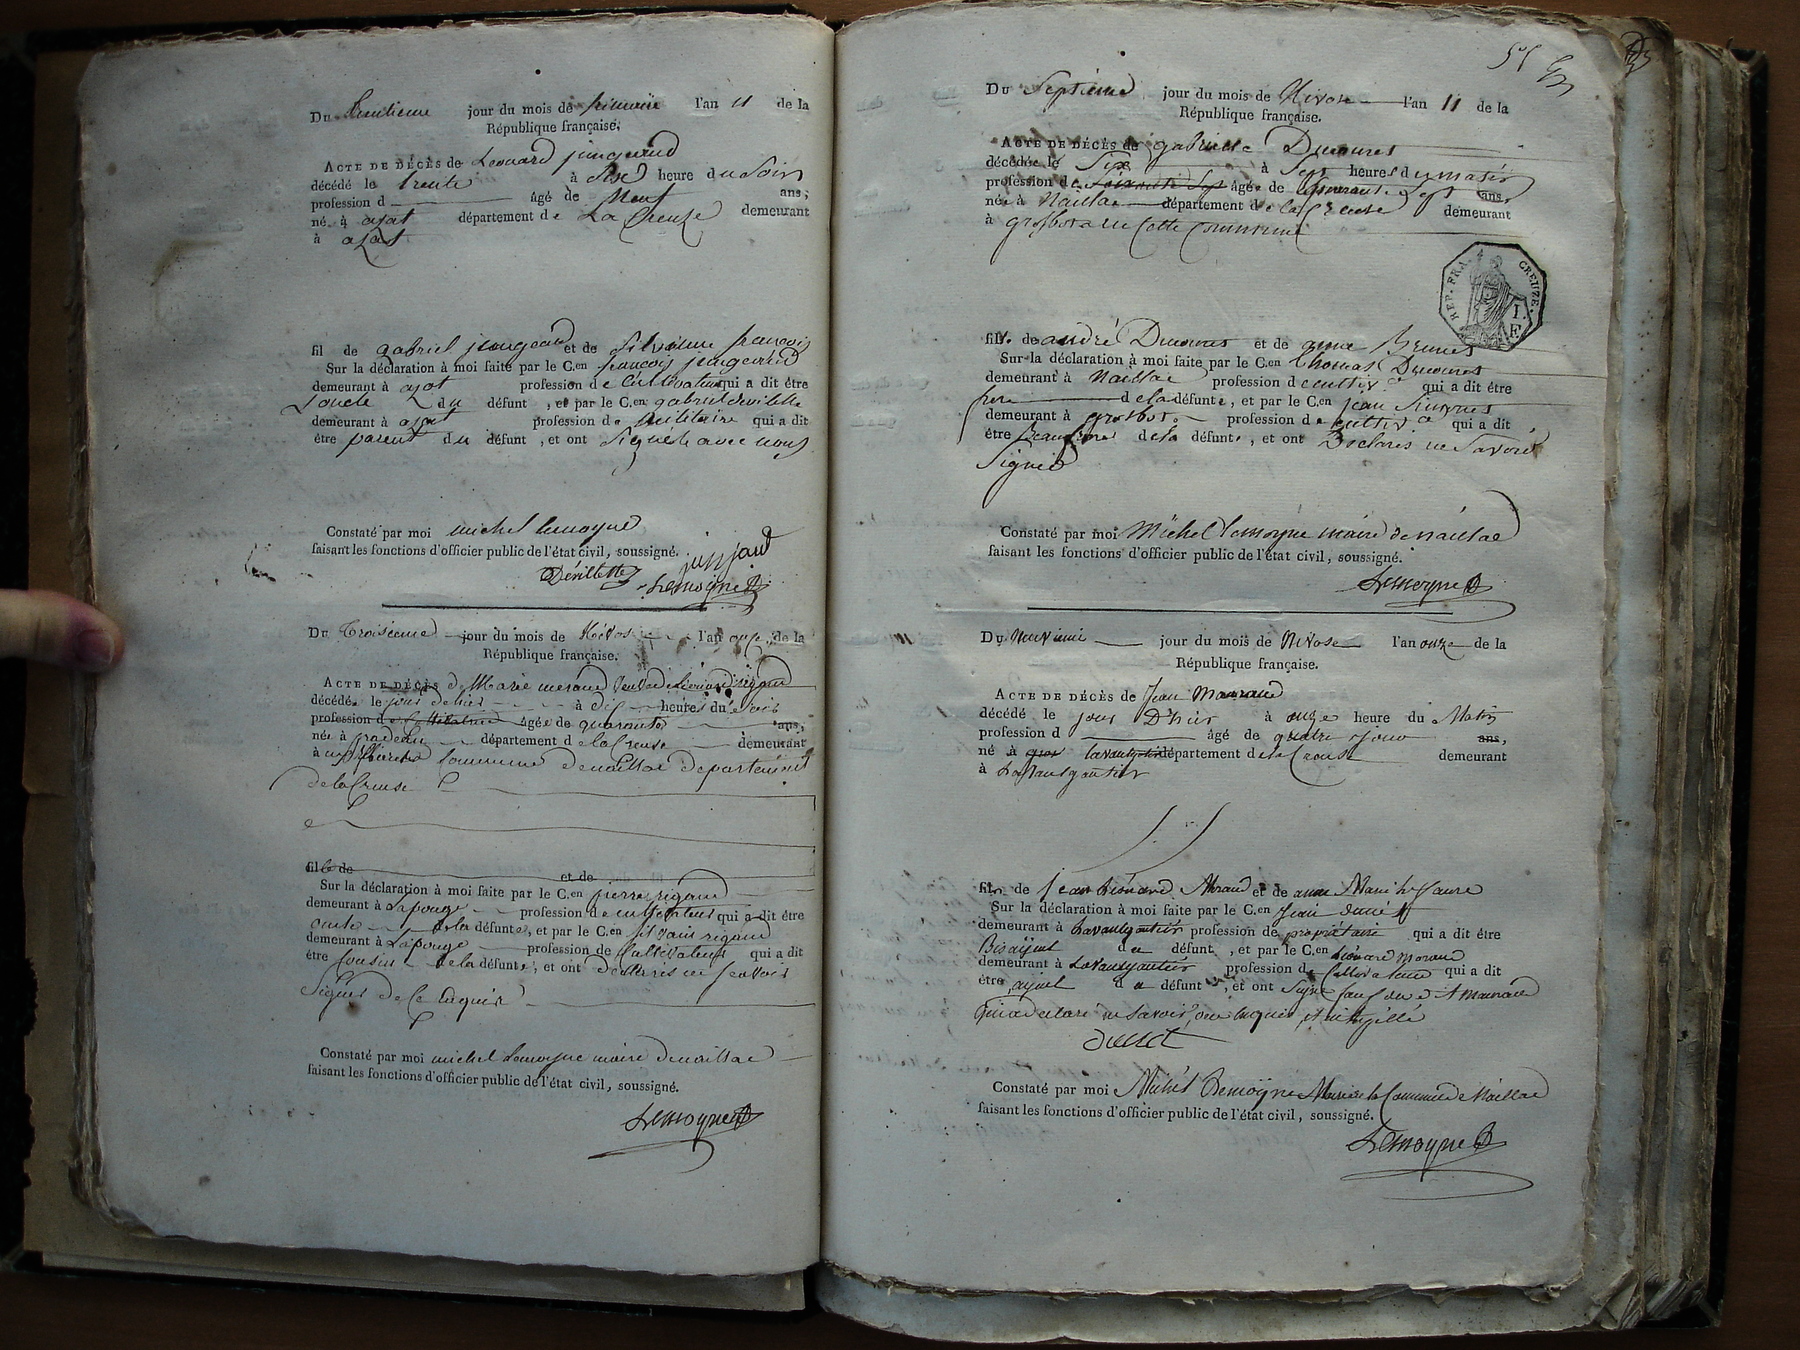 Du trentieme jour du mois de frimaire l'an 11 de la
République française.
ACTE DE DÉCÈS de Leonard jungeaud
décédé le trente à six heure du Soir
profession d âgé de Neuf ans,
né à ajat département de La Creuse demeurant
à ajat
fil de gabriel jeungeaud et de Silvaine françois
Sur la déclaration à moi faite par le C.en françois jungeaud
demeurant à ajat profession de Cultivateur qui a dit être
Loncle du défunt , et par le C.en gabriel devillette
demeurant à ajat profession de Militaire qui a dit
être parent du défunt , et ont Signé avec nous
Constaté par moi michel lemoyne
faisant les fonctions d'officier public de l'état civil, soussigné.
Dévillette junjaud
Lemoyne
Du Troisieme jour du mois de Nivos l'an onze de la
République française.
ACTE DE DÉCÈS de Marie merand veuve de Léonard rigaud
décédée le jour dehier à dix heures du Soir
profession de âgée de quarante ans,
née à pradeau département de la Creuse demeurant
à commune de naillac departement
de la Creuse
fille de et de
Sur la déclaration à moi faite par le C.en pierre rigaud
demeurant à Lapouge profession de cultivateur qui a dit être
oncle de la défunte, et par le C.en silvain rigaud
demeurant à Lapouge profession de Cultivateur qui a dit
être Cousin de la défunte, et ont déclarés ne Scavoir
Signer de Ce enquis
Constaté par moi michel Lemoyne maire denaillac
faisant les fonctions d'officier public de l'état civil, soussigné.
Lemoyne
Du Septieme jour du mois de Nivose l'an 11 de la
République française.
ACTE DE DÉCÈS de gabrielle Ducouret
décédée le Six à Sept heures du matin
profession de âgée de Sept ans,
née à Naillac département de la Creuse demeurant
à grosbost en Cette Commune
REP. FRA. CREUZE.
fill. de andré Ducouret et de anne Brunet
Sur la déclaration à moi faite par le C.en Thomas Ducouret
demeurant à Naillac profession de cultiv.r qui a dit être
frere de la défunte, et par le C.en jean
demeurant à grosbost profession de cultiv.r qui a dit
être Beaufrere de la défunte, et ont Declarés ne Savoir
Signer
Constaté par moi Michel Lemoyne maire de naillac
faisant les fonctions d'officier public de l'état civil, soussigné.
Lemoyne
Du Neuvieme jour du mois de Nivose l'an onze de la
République française.
ACTE DE DÉCÈS de Jean Maraud
décédé le jour D'hier à onze heure du Matin
profession d âgé de quatre jour ans,
né à Lavaudgautier département de la Creuse demeurant
à Lavaudgautier
fils de jean Léonard Moraud et de anne Marie le faure
Sur la déclaration à moi faite par le C.en Jean
demeurant à Lavaudgautier profession de propriétaire qui a dit être
Bisayeul du défunt , et par le C.en Léonard Moraud
demeurant à Lavaudgautier profession de Cultivateur qui a dit
être ayeul du défunt , et ont Signé Sauf
qui a declaré ne Savoir de ce enquis et interpellé
Constaté par moi Michel Lemoÿne Maire de la Commune de Naillac
faisant les fonctions d'officier public de l'état civil, soussigné.
Lemoyne